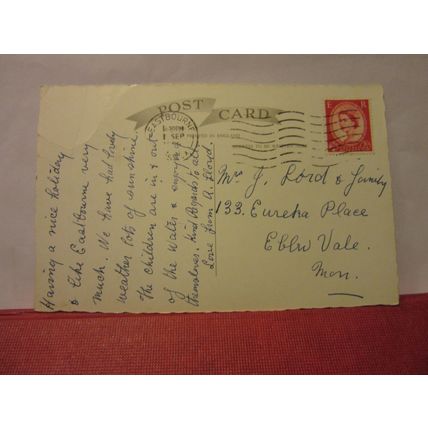 POST CARD
EASTBOURNE
1 SEP
E R
Having a nice holiday
& like Eastbourne very
much. We have had lovely
weather lots of sunshine
the children are in & out
of the water & enjoying
themselves. Kind Regards to all
Love from A. Lloyd.
Mrs J. Lord & Family
133. Eureka Place
Ebbw Vale.
Mon.